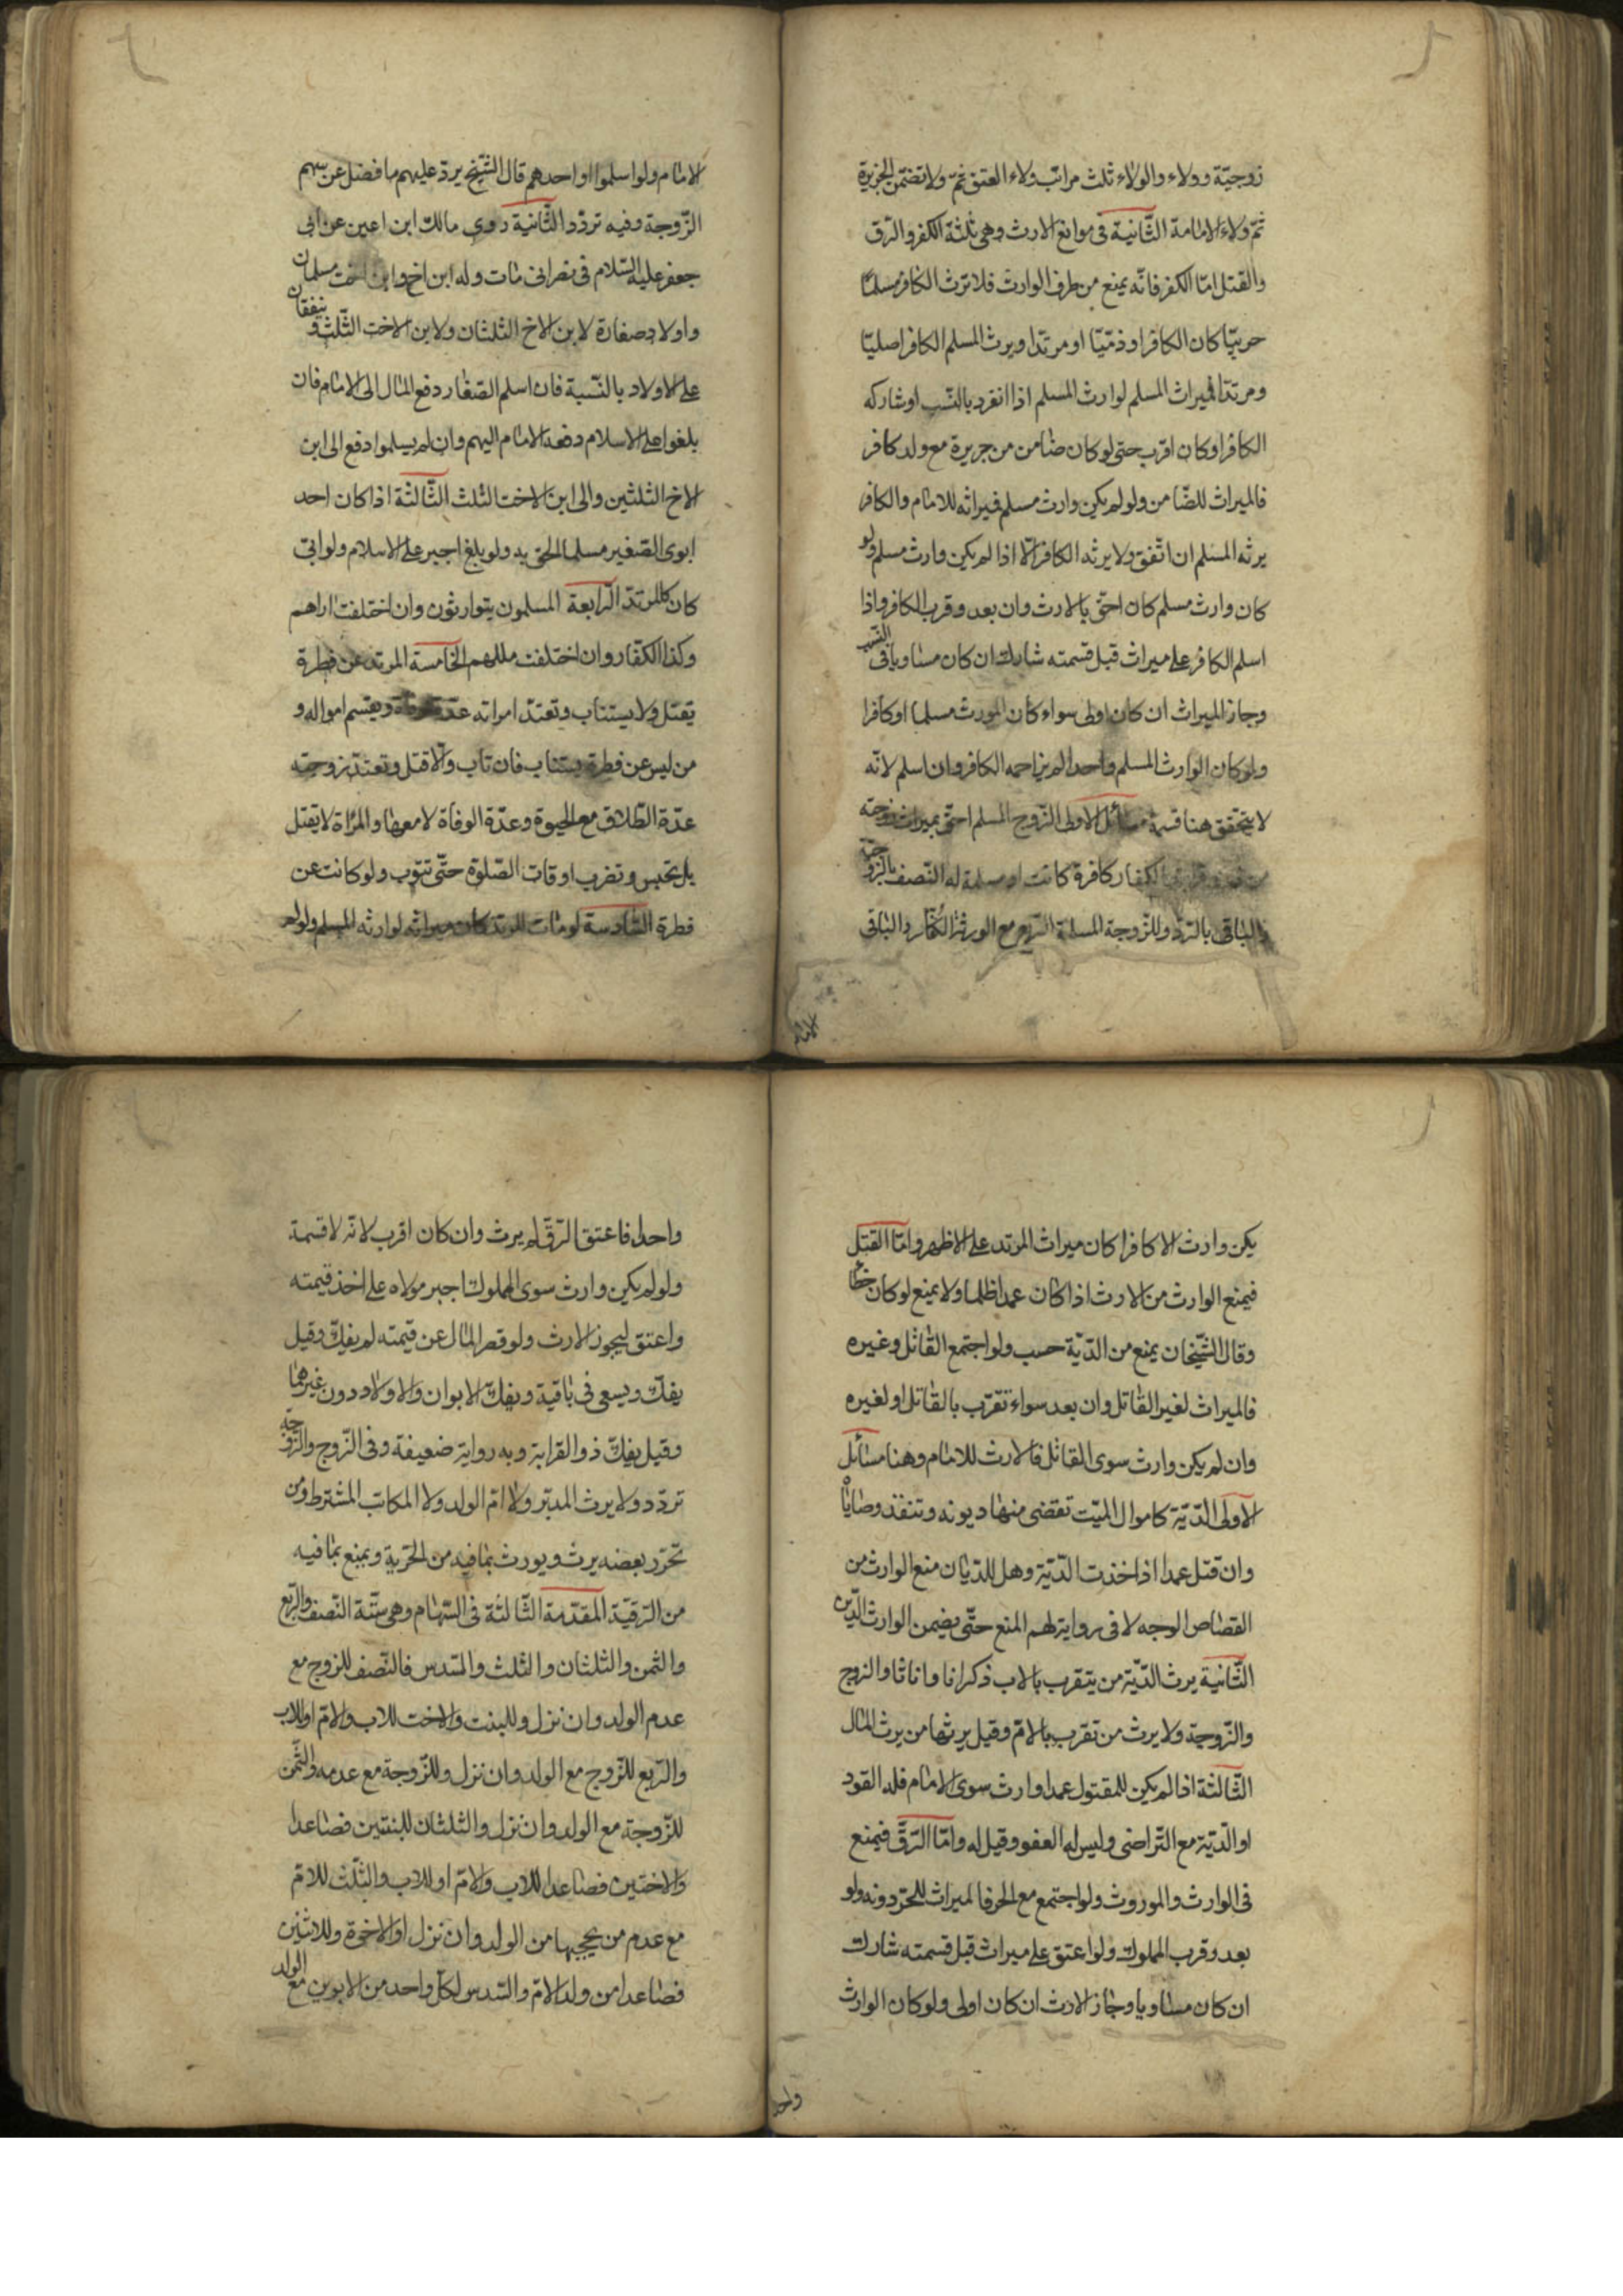 زوجيّة وولاء والولاء ثلث مراتب ولاء العتق ثمّ ولاء تضمّن الجريرة
ثمّ ولاء الامامة الثّانية فى موانع الارث وهى ثلثة الكفر والرّق
والقتل امّا الكفر فانّه يمنع من طرف الوارث فلا يرث الكافر مسلمًا
حربيّا كان الكافر او ذمّيّا او مرتدا ويرث المسلم الكافر اصليّا
ومرتدّا فميراث المسلم لوارث المسلم اذا انفرد بالنّسب او شاركه
الكافر او كان اقرب حتى لو كان ضامن من جريرة مع ولد كافر
فالميراث للضّامن ولو لم يكن وارث مسلم فميراثه للامام والكافر
يرثه المسلم ان اتّفق ولا يرثه الكافر الّا اذا لم يكن وارث مسلم ولو
كان وارث مسلم كان احقّ بالارث وان بعد وقرب الكافر واذا
اسلم الكافر على ميراث قبل قسمته شارك ان كان مساويا فى النّسب
وحاز الميراث ان كان اولى سواء كان المورث مسلما او كافرا
ولو كان الوارث المسلم واحدا لم يزاحمه الكافر وان اسلم لانّه
لا يتحقق هنا قسمة مسائل الاولى الزّوج المسلم احقّ بميراث زوجته
من ذوى قرابتها الكفار كافرة كانت او مسلمة له النّصف بالزّوجيّة
والباقى بالرّدّ وللزّوجة المسلمة الرّبع مع الورثة الكفّار والباقى
الاما
للامام ولو اسلموا او احدهم قال الشّيخ يردّ عليهم ما فضل عن سهم
الزّوجة وفيه تردّد الثّانية روى مالك ابن اعين عن ابى
جعفر عليه السّلام فى نصرانى مات وله ابن اخ وابن اخت مسلمان
واولاد صغار لابن الاخ الثلثان ولابن الاخت الثّلث وينفقان
على الاولاد بالنّسبة فان اسلم الصّغار دفع المال الى الامام فان
بلغوا على الاسلام دفعه الامام اليهم وان لم يسلموا دفع الى ابن
الاخ الثلثين والى ابن الاخت الثلث الثّالثة اذا كان احد
ابوى الصّغير مسلما الحق به ولو بلغ اجبر على الاسلام ولو ابى
كان كالمرتدّ الرّابعة المسلمون يتوارثون وان اختلفت اراهم
وكذا الكفّار وان اختلفت مللهم الخامسة المرتد عن فطرة
يقتل ولا يستتاب وتعتدّ امراته عدّة الوفاة ويقسم امواله و
من ليس عن فطرة يستتاب فان تاب والّا قتل وتعتدّ زوجته
عدّة الطّلاق مع الحيوة وعدّة الوفاة لا معها والمرأة لا تقتل
بل تحبس وتضرب اوقات الصّلوة حتّى تتوب ولو كانت عن
فطرة السّادسة لو مات المرتد كان ميراثه لوارثه المسلم ولو لم
يكن وارث الا كافرا كان ميراث المرتد على الاظهر وامّا القتل
فيمنع الوارث من الارث اذا كان عمدا ظلما ولا يمنع لو كان خطأ
وقال الشّيخان يمنع من الدّيّة حسب ولو اجتمع القاتل وغيره
فالميراث لغير القاتل وان بعد سواء تقرّب بالقاتل او لغيره
وان لم يكن وارث سوى القاتل فالارث للامام وهنا مسائل
الاولى الدّيّة كاموال الميّت تقضى منها ديونه وتنفذ وصاياه
وان قتل عمدا اذا اخذت الدّيّة وهل للدّيّان منع الوارث من
القصاص الوجه لا فى رواية لهم المنع حتّى يضمن الوارث الدّين
الثّانية يرث الدّيّة من يتقرب بالاب ذكرانا واناثا والزوج
والزّوجة ولا يرث من تقرب بالامّ وقيل يرثها من يرث المال
الثّالثة اذا لم يكن للمقتول عمدا وارث سوى الامام فله القود
او الدّيّة مع التّراضى وليس له العفو وقيل له وامّا الرّقّ فيمنع
فى الوارث والموروث ولو اجتمع مع الحر فالميراث للحرّ دونه ولو
بعد وقرب المملوك ولو اعتق على ميراث قبل قسمته شارك
ان كان مساويا وحاز الارث ان كان اولى ولو كان الوارث
واحد
واحدا فاعتق الرّقّ لم يرث وان كان اقرب لانّه لا قسمة
ولو لم يكن وارث سوى المملوك اجبر مولاه على اخذ قيمته
واعتق ليحوز الارث ولو قصر المال عن قيمته لم يفكّ وقيل
يفكّ ويسعى فى باقية ويفكّ الابوان والاولاد دون غيرهما
وقيل يفكّ ذو القرابة وبه رواية ضعيفة وفى الزّوج والزّوجة
تردّد ولا يرث المدبّر ولا امّ الولد ولا المكاتب المشترط ومن
تحرّر بعضه يرث ويورث بما فيه من الحرّية ويمنع بما فيه
من الرّقيّة المقدّمة الثّالثة فى السّهام وهى ستّة النّصف والرّبع
والثمن والثلثان والثلث والسّدس فالنّصف للزوج مع
عدم الولد وان نزل وللبنت والاخت للاب والامّ او للاب
والرّبع للزّوج مع الولد وان نزل وللزّوجة مع عدمه والثّمن
للزّوجة مع الولد وان نزل والثلثان للبنتين فصاعدا
والاختين فصاعدا للاب والامّ او للاب والثّلث للامّ
مع عدم من يحجبها من الولد وان نزل او الاخوة وللاثنين
فصاعدا من ولد الامّ والسّدس لكلّ واحد من الابوين مع الولد